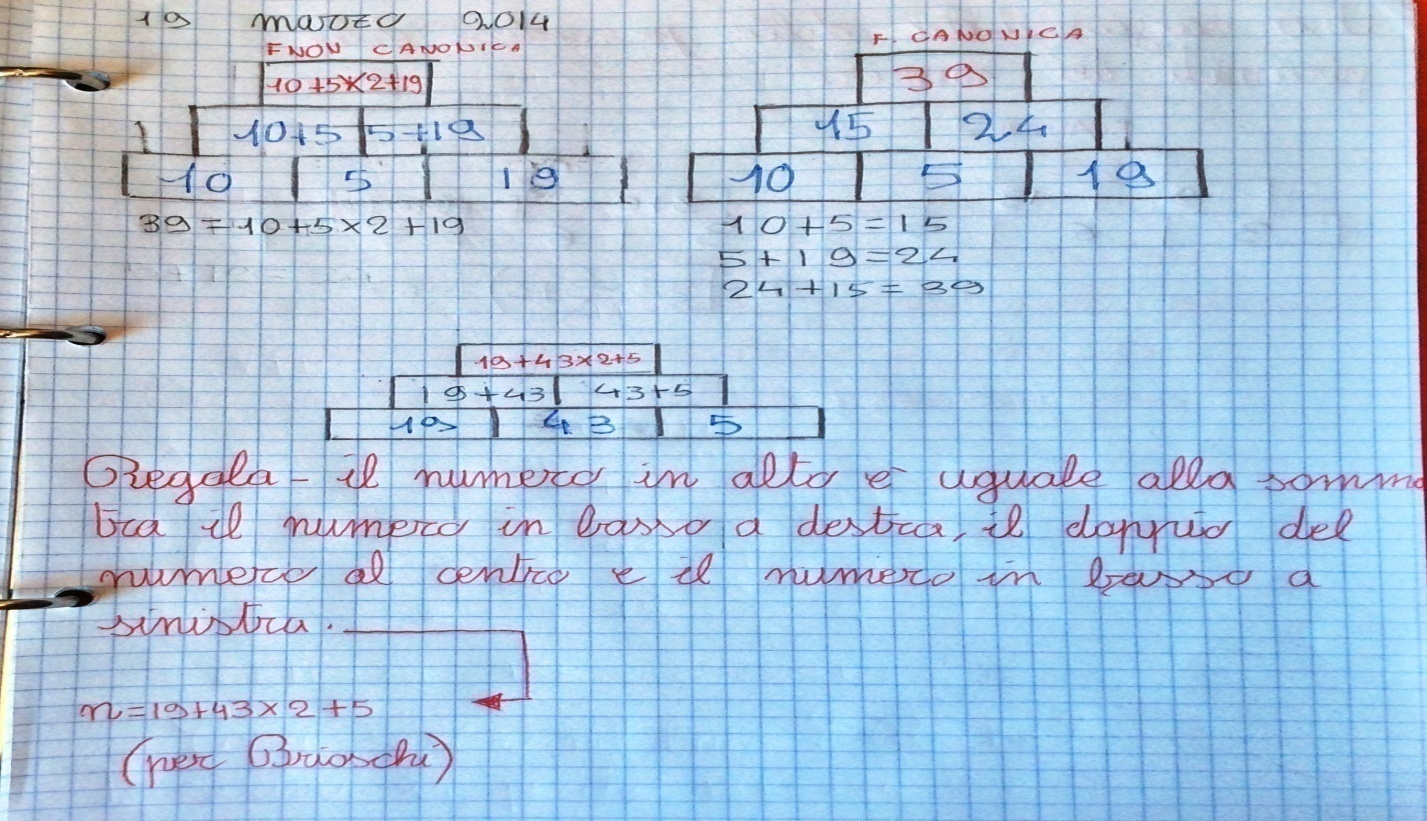 19 marzo 2014
F NON CANONICA
10+5×2+19
10+5 5+19
10 5 19
39=10+5×2+19
F. CANONICA
39
15 24
10 5 19
10+5=15
5+19=24
24+15=39
19+43×2+5
19+43 43+5
19 43 5
Regola - il numero in alto è uguale alla somma
tra il numero in basso a destra, il doppio del
numero al centro e il numero in basso a
sinistra.
n=19+43×2+5
(per Brioschi)